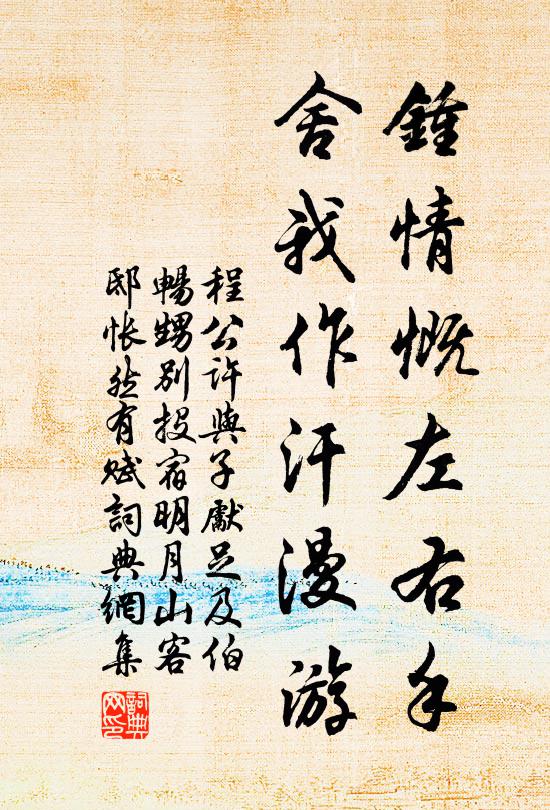 鍾情慨左右手
舍我作汗漫游
程公許與子獻足及伯
暢甥別投宿明月山客
邸悵然有賦詞典網集
詞典网印